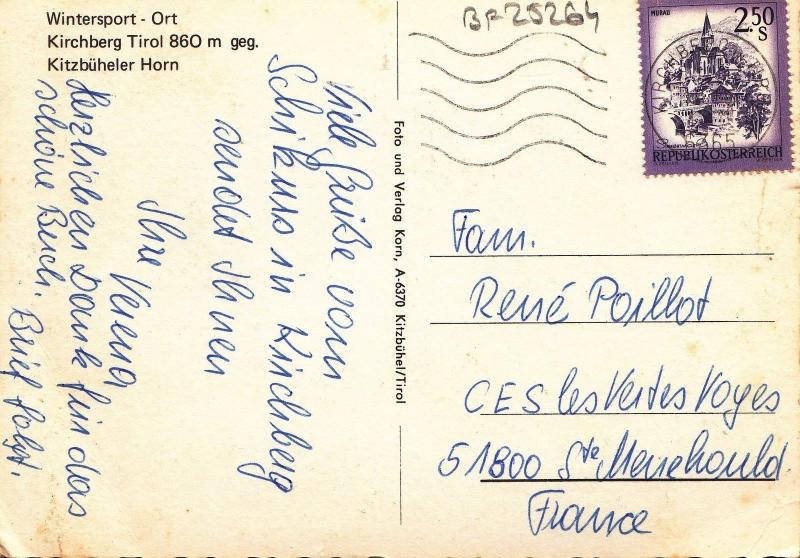 Wintersport - Ort
Kirchberg Tirol 860 m geg.
Kitzbüheler Horn
BF25264
MURAU
2.50
S
REPUBLIK ÖSTERREICH
6365
Viele Grüße vom
Schikurs in Kirchberg
sendet Ihnen
Ihre Verena
Herzlichen Dank für das
schöne Buch. Brief folgt.
Foto und Verlag Korn, A-6370 Kitzbühel/Tirol
Fam.
René Poillot
CES les Vertes Voyes
51800 Ste Menehould
France